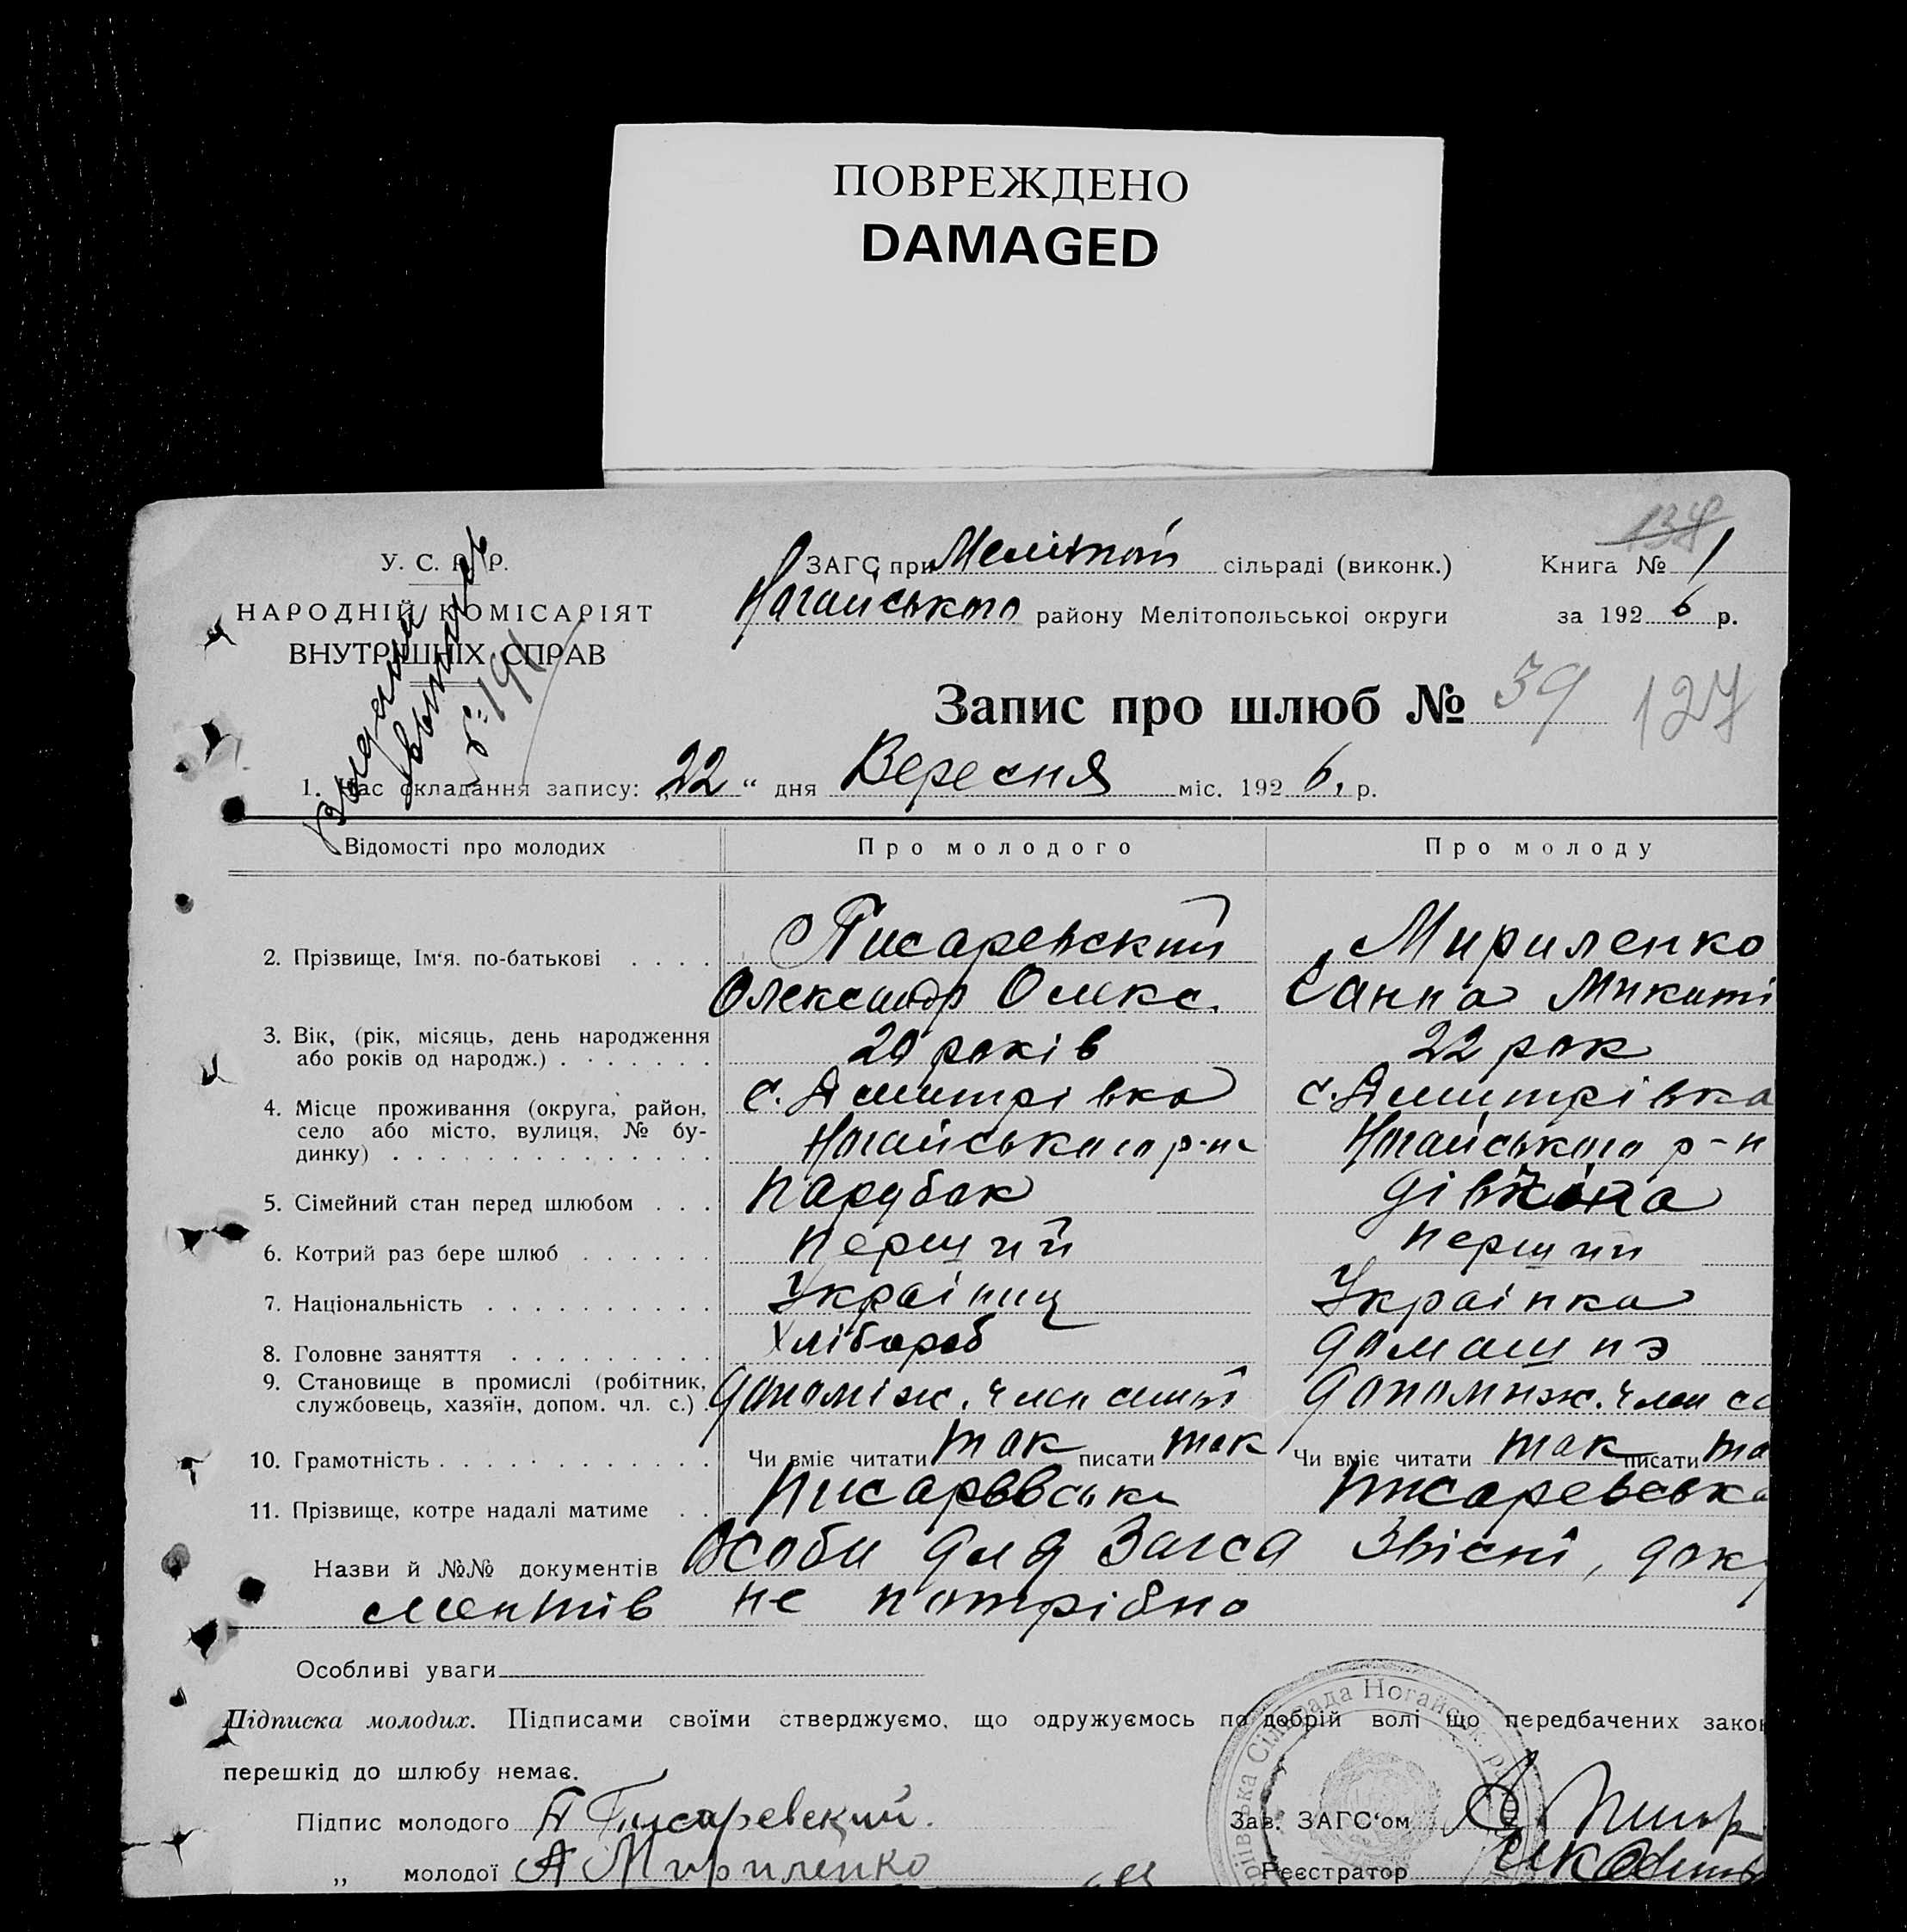 ПОВРЕЖДЕНО
DAMAGED
138
У. С. Р. Р.
НАРОДНІЙ КОМІСАРІЯТ
ВНУТРІШНІХ СПРАВ
ЗАГС при сільраді (виконк.)
Ногайського району Мелітопольської округи
Книга № 1
за 1926 р.
№ 191
Запис про шлюб № 39 127
1. Час складання запису: „22“ дня Вересня міс. 1926, р.
Відомості про молодих Про молодого Про молоду
2. Прізвище, Ім'я. по-батькові . . . . Писаревский Мириленко
Олександр Олекс. Ганна Микиті
3. Вік, (рік, місяць, день народження
або років од народж.) . . . . . . . 20 років 22 рок
4. Місце проживання (округа, район,
село або місто, вулиця, № бу-
динку) . . . . . . . . . . . . . . с. Дмитрівка с. Дмитрівка
Ногайського р-н Ногайського р-н
5. Сімейний стан перед шлюбом . . . Парубок дівчина
6. Котрий раз бере шлюб . . . . . . перший перший
7. Національність . . . . . . . . . . Українец Українка
8. Головне заняття . . . . . . . . . Хлібороб домашнэ
9. Становище в промислі (робітник,
службовець, хазяїн, допом. чл. с.) . допоміж. член сім'ї допомиж. член се
10. Грамотність . . . . . . . . . . . . Чи вміє читати так писати так Чи вміє читати так писати та
11. Прізвище, котре надалі матиме . . Писаревськ Писаревська
Назви й №№ документів Особи для Загса Звісні, доку
ментів не потрібно
Особливі уваги
Підписка молодих. Підписами своїми стверджуємо, що одружуємось по добрій волі що передбачених закон
перешкід до шлюбу немає.
Підпис молодого А Писаревский.
Зав. ЗАГС'ом
„ молодої А Мириленко
Реєстратор
рівська Сільрада Ногайськ. р